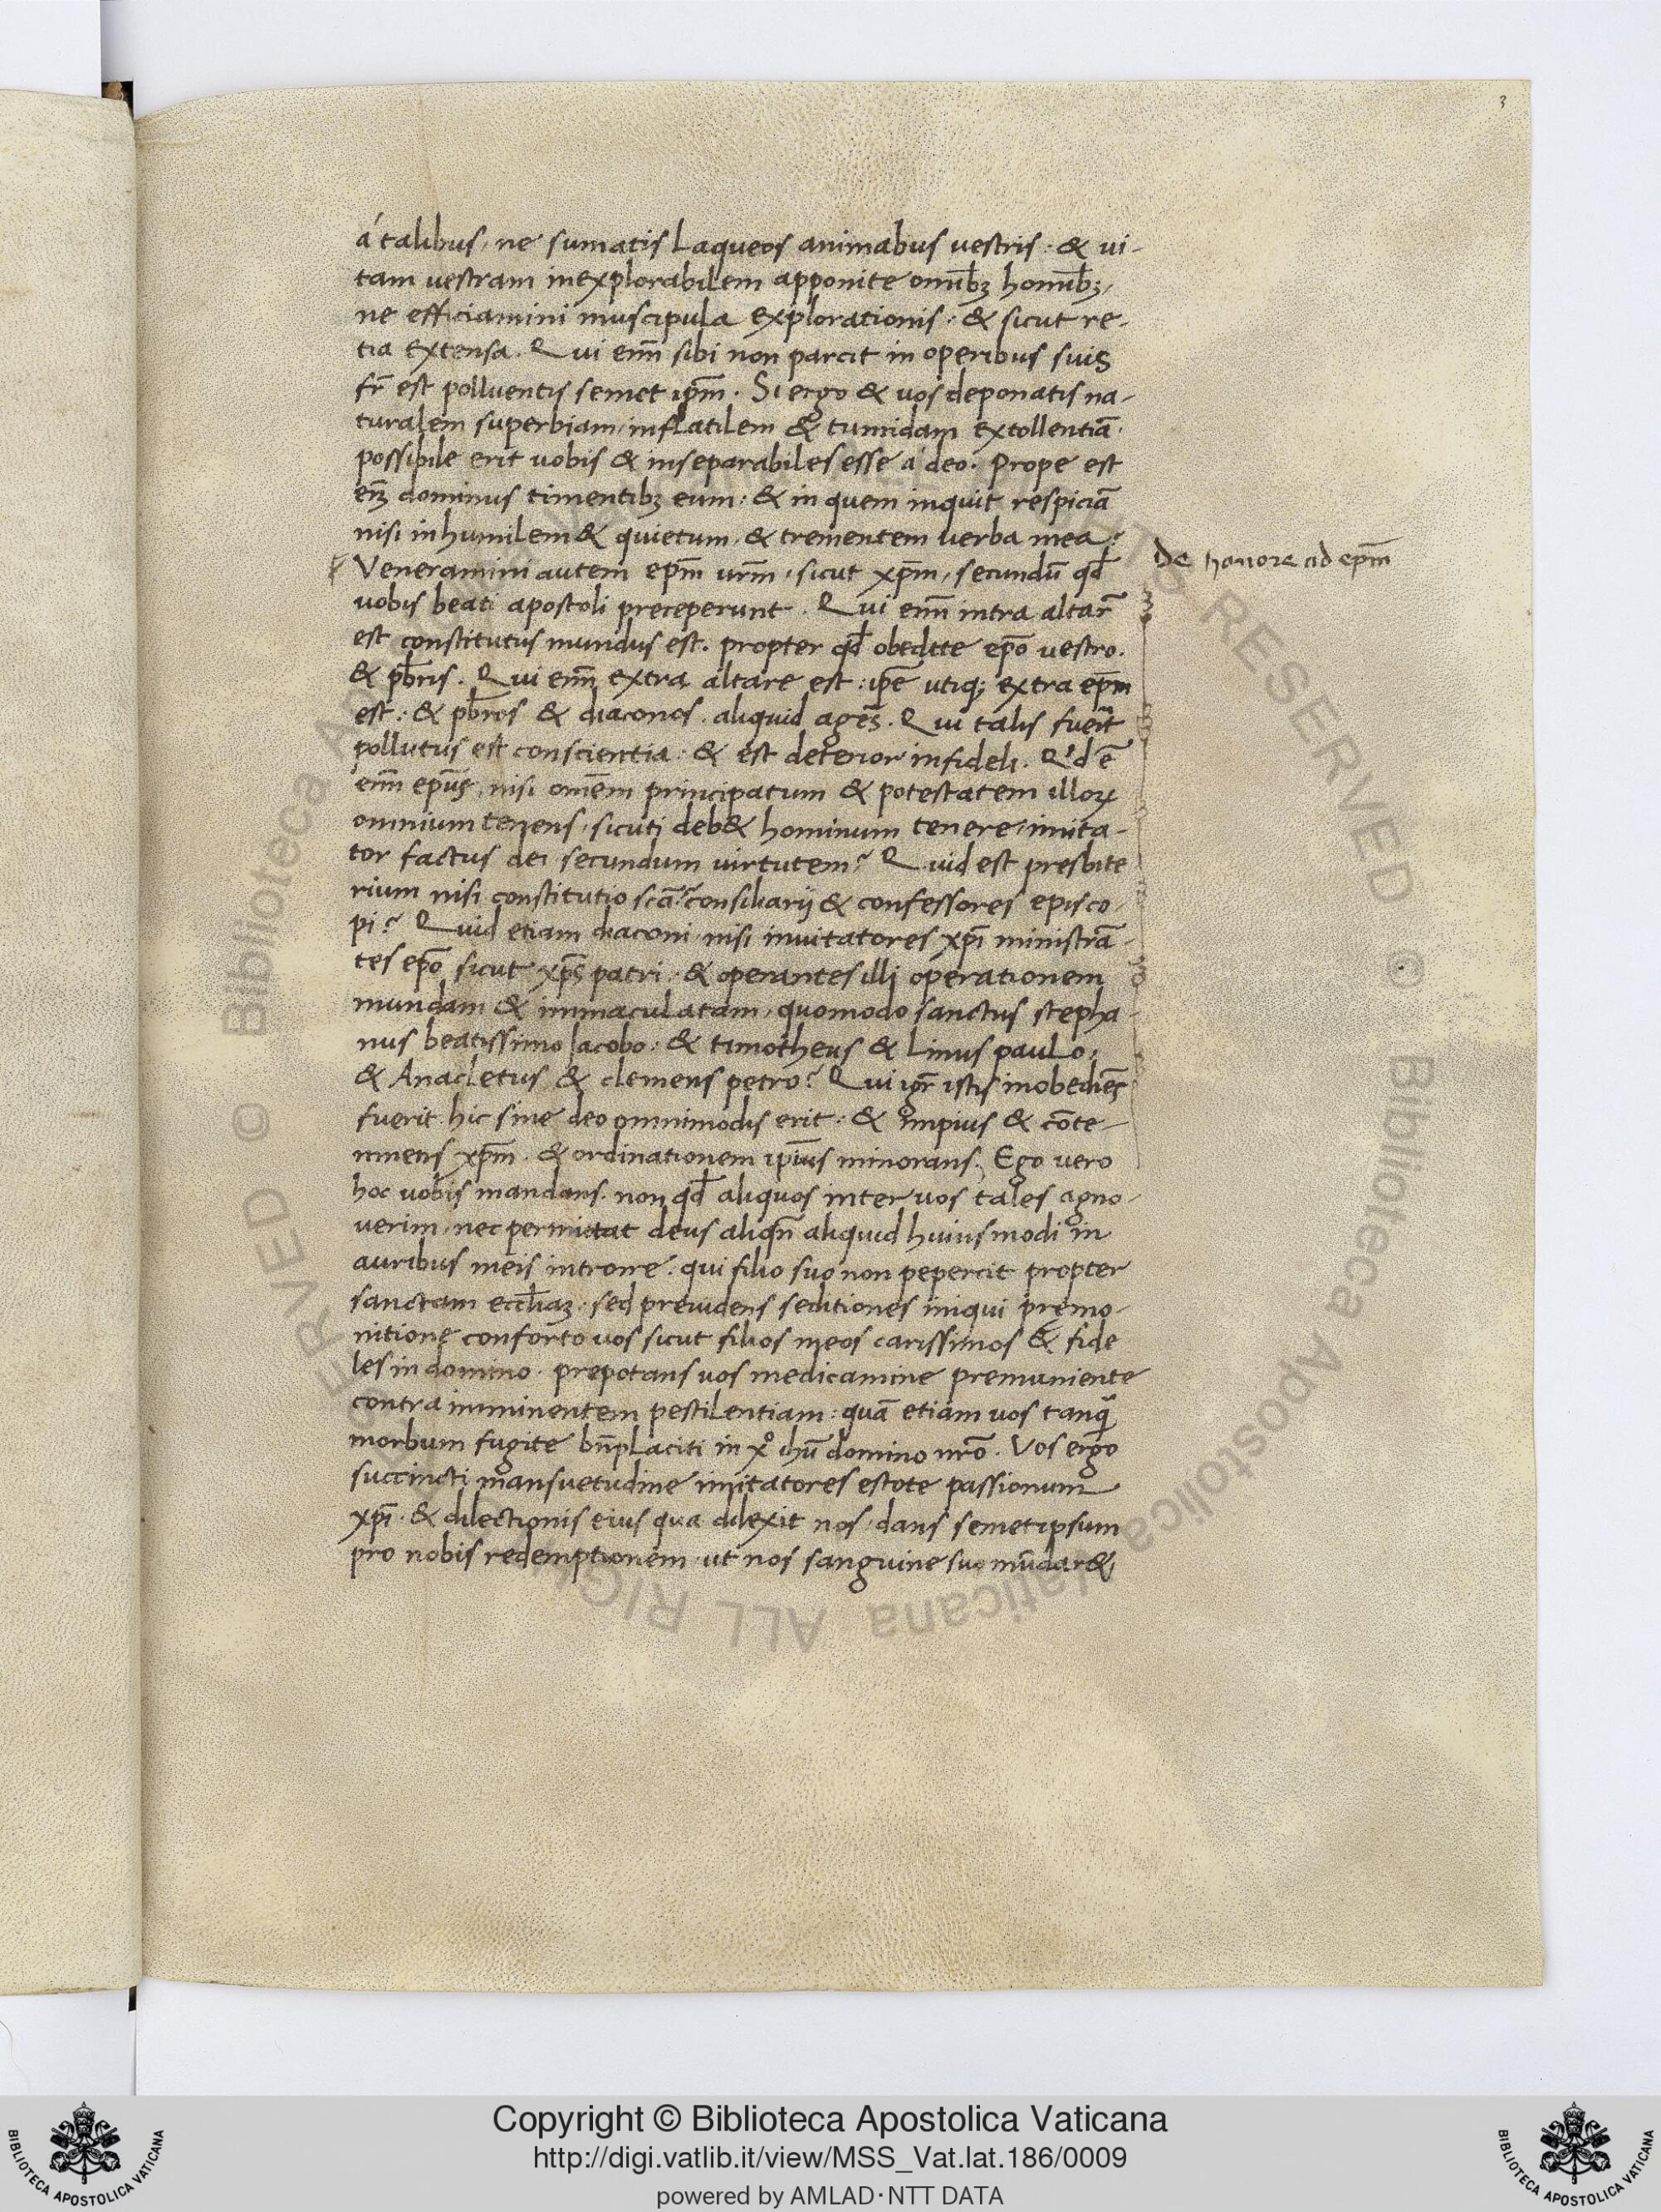 3
á talibus, ne sumatis laqueos animabus vestris: & vi-
tam vestram inexplorabilem apponite omībꝫ homībꝫ,
ne efficiamini muscipula explorationis: & sicut re-
tia extensa. Qui enī sibi non parcit in operibus suis
fr̄ est polluentis semet ip̄m. Si ergo & vos deponatis na-
turalem superbiam, inflatilem & tumidam extollentiā.
possibile erit vobis & inseparabiles esse á deo. Prope est
en̄ dominus timentibꝫ eum: & in quem inquit respiciā
nisi in humilem & quietum. & trementem verba mea?
Veneramini autem ep̄m vr̄m, sicut xp̄m, secundū qđ
vobis beati apostoli preceperunt. Qui enī intra altar̄
est constitutus mundus est. propter qđ obedite ep̄o vestro.
& pb̄ris. Qui enī extra altare est: ip̄e utiqꝫ extra ep̄m
est: & pb̄ros & diaconos. aliquid agēs. Qui talis fuerit
pollutus est conscientia: & est deterior infideli. Qd ē
enī ep̄us, nisi omēm principatum & potestatem illoꝝ
omnium tenens, sicuti deb& hominum tenere, imita-
tor factus dei secundum virtutem? Quid est presbite
rium nisi constitutio scā? consiliarij & confessores episco-
pi? Quid etiam diaconi, nisi imitatores xp̄i ministrā-
tes ep̄o sicut xp̄s patri: & operantes illi operationem
mundam & immaculatam, quomodo sanctus stepha-
nus beatissimo Jacobo: & timotheus & Linus paulo:
& Anacletus & clemens petro? Qui igr̄ istis inobediēs
fuerit hic sine deo omnimodis erit: & impius & cōte-
mnens xp̄m. & ordinationem ip̄ius minorans. Ego vero
hoc vobis mandans. non qđ aliquos inter vos tales agno-
verim, nec permittat deus aliqn̄ aliquid huiusmodi in
auribus meis introire: qui filio suo non pepercit propter
sanctam eccl̄iaꝫ: sed previdens seditiones iniqui premo-
nitione conforto vos sicut filios meos carissimos & fide
les in domino. prepotans vos medicamine premuniente
contra imminentem pestilentiam: quā etiam vos tanqꝫ
morbum fugite bn̄placiti in xº ihū domino nr̄o. Vos ergo
succincti mansuetudine imitatores estote passionum
xp̄i. & dilectionis eius qua dilexit nos, dans semetipsum
pro nobis redemptionem, ut nos sanguine suo mūdar&,
De honore ad ep̄m
© Biblioteca Apostolica Vaticana ALL RIGHTS RESERVED
BIBLIOTECA APOSTOLICA VATICANA
Copyright © Biblioteca Apostolica Vaticana
http://digi.vatlib.it/view/MSS_Vat.lat.186/0009
powered by AMLAD·NTT DATA
BIBLIOTECA APOSTOLICA VATICANA